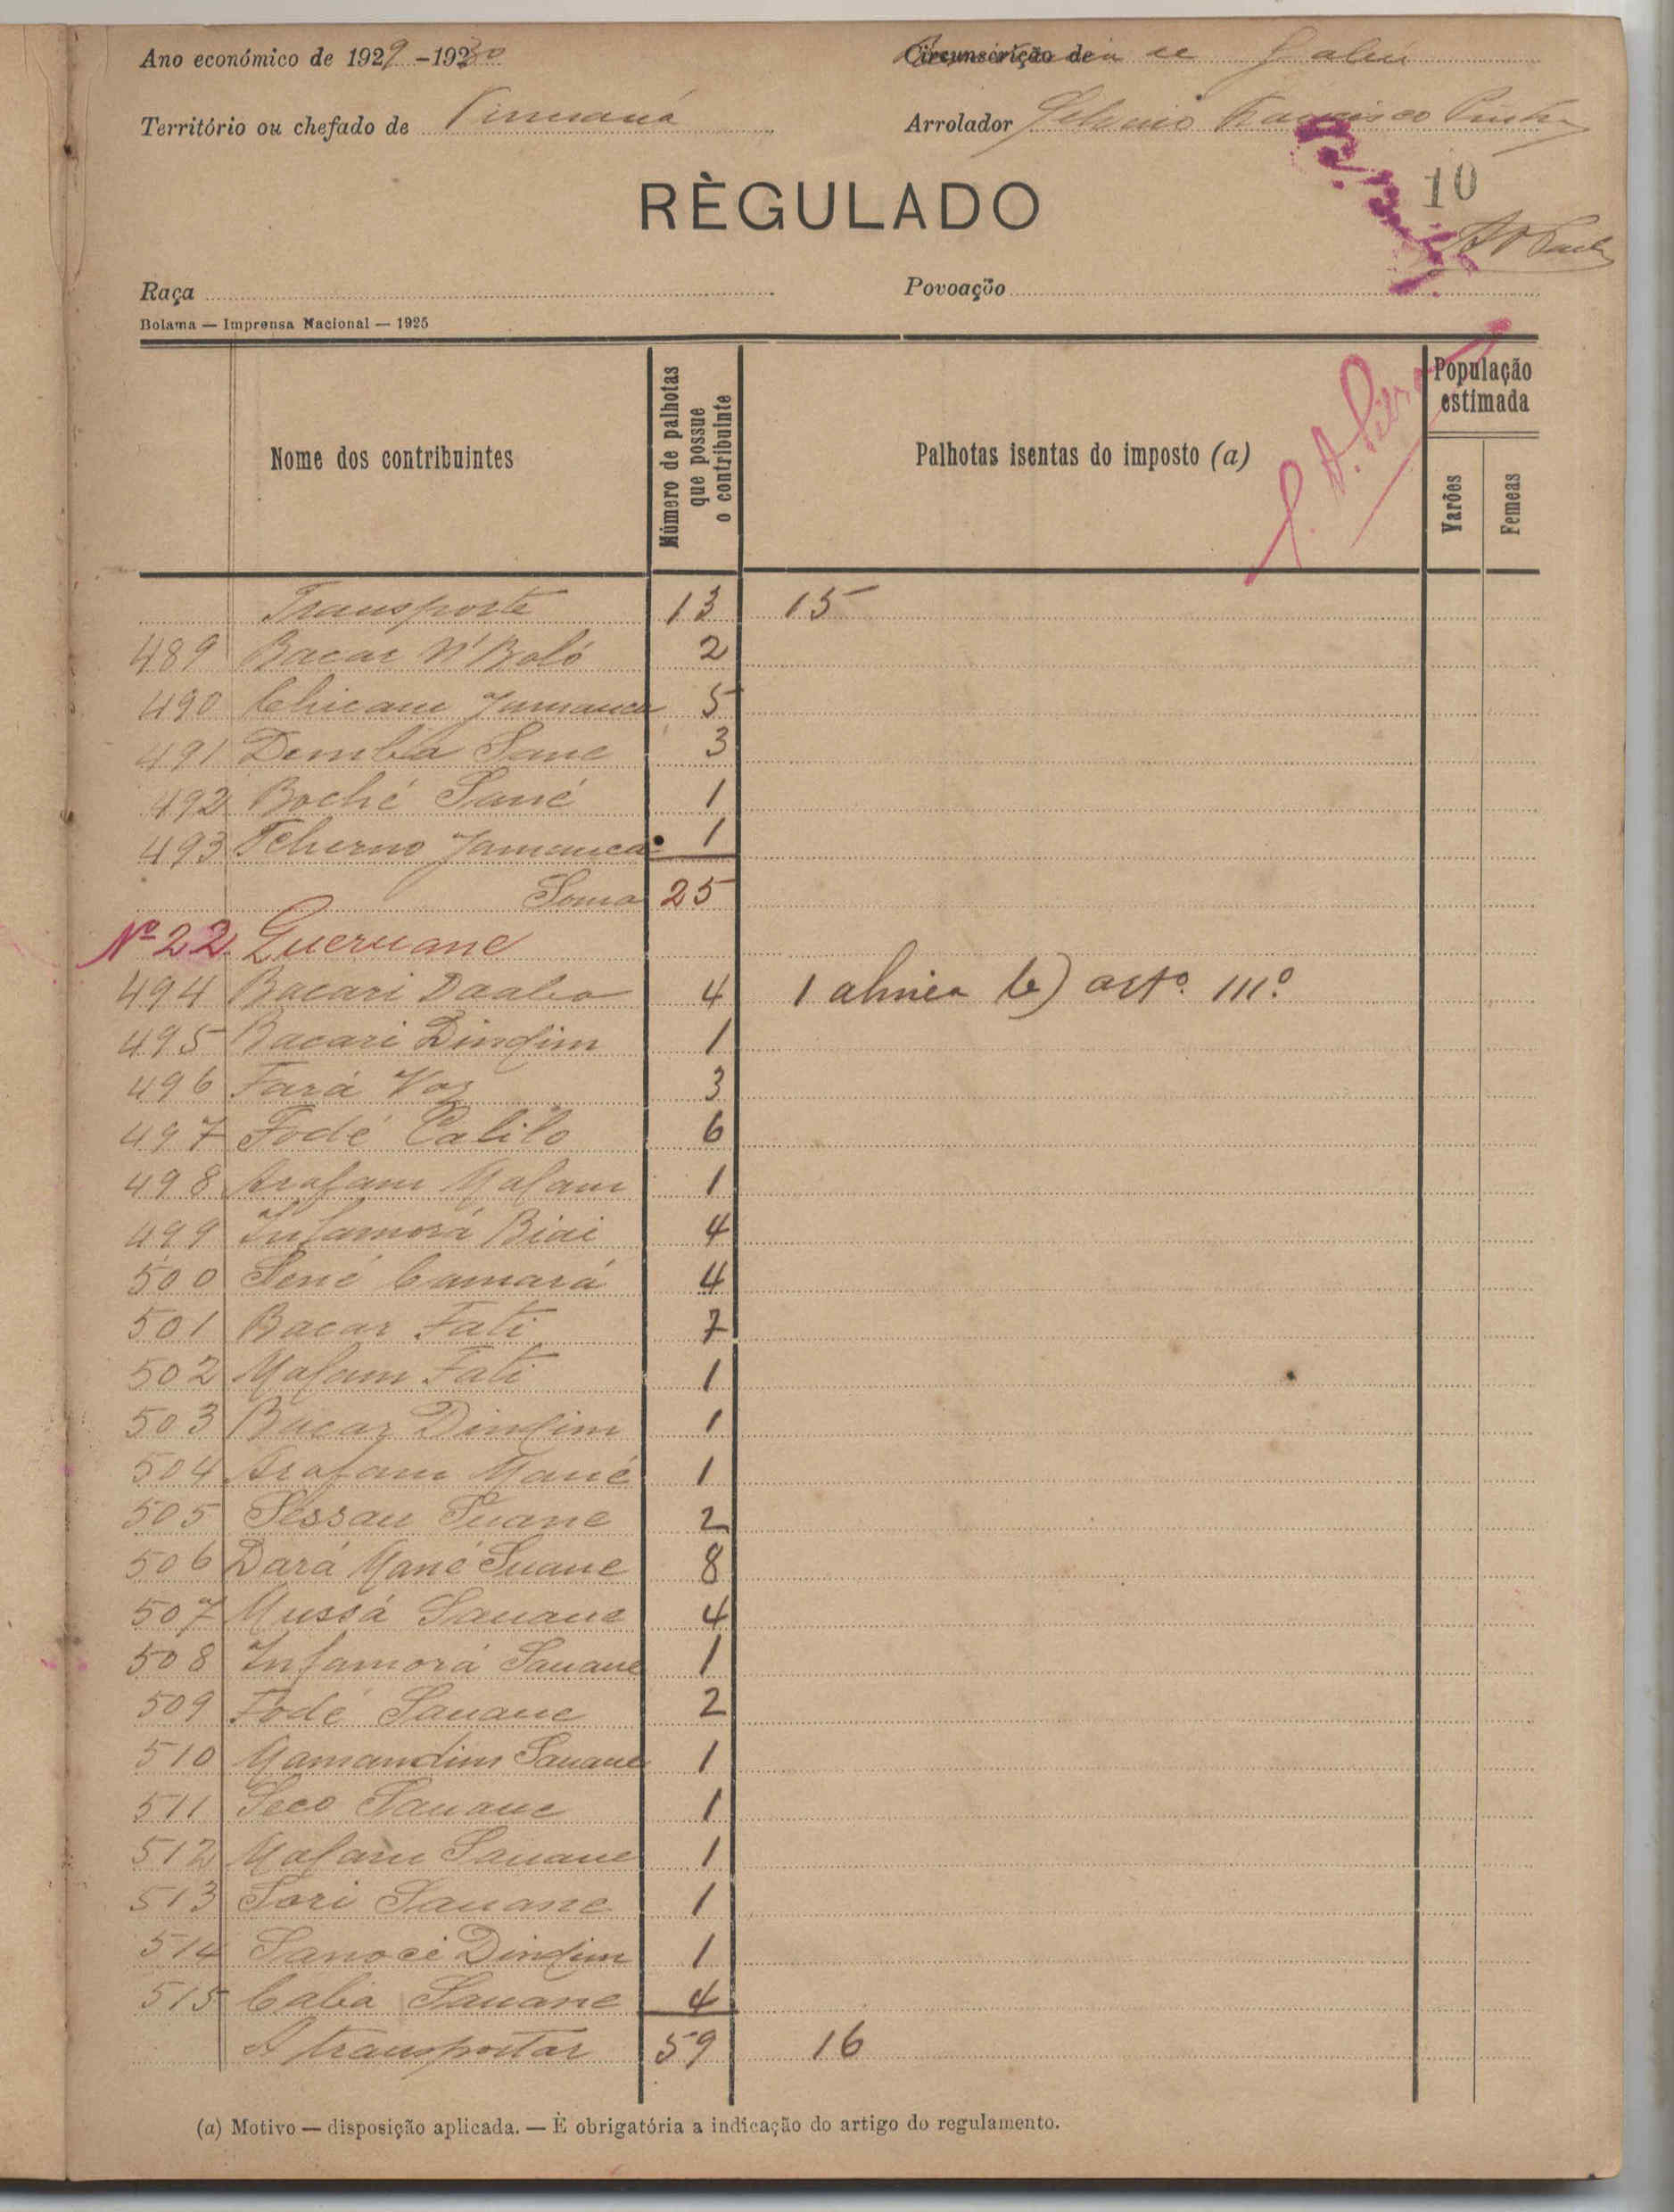 Ano económico de 1929-1930
Circunscrição de
Território ou chefado de
Arrolador Francisco
RÈGULADO
10
Raça
Povoação
Bolama — Imprensa Nacional — 1925
Nome dos contribuintes
Número de palhotas que possue o contribuinte
Palhotas isentas do imposto (a)
População estimada
Varões
Femeas
Transporte 13 15
489 Bacar N'Boló 2
490 Jamanca 5
491 Demba Sane 3
492 Boché Sané 1
493 Tcherno Jamanca 1
Soma 25
Nº 22 Gueruane
494 Bacari Daabo 4 1 alinea b) artº 111º
495 Bacari Dindim 1
496 Fará Vaz 3
497 Fodé Calilo 6
498 Arafam Malam 1
499 Infamorá Biai 4
500 Sené Camará 4
501 Bacar Fati 7
502 Malam Fati 1
503 Bacar Dindim 1
504 Arafam Mané 1
505 Suane 2
506 Dará Mané Suane 8
507 Mussá Sauane 4
508 Infamorá Sauane 1
509 Fodé Sauane 2
510 Mamandim Sauane 1
511 Seco Sauane 1
512 Malam Sauane 1
513 Sori Sauane 1
514 Dindim 1
515 Caba Sauane 4
A transportar 59 16
(a) Motivo — disposição aplicada. — È obrigatória a indicação do artigo do regulamento.